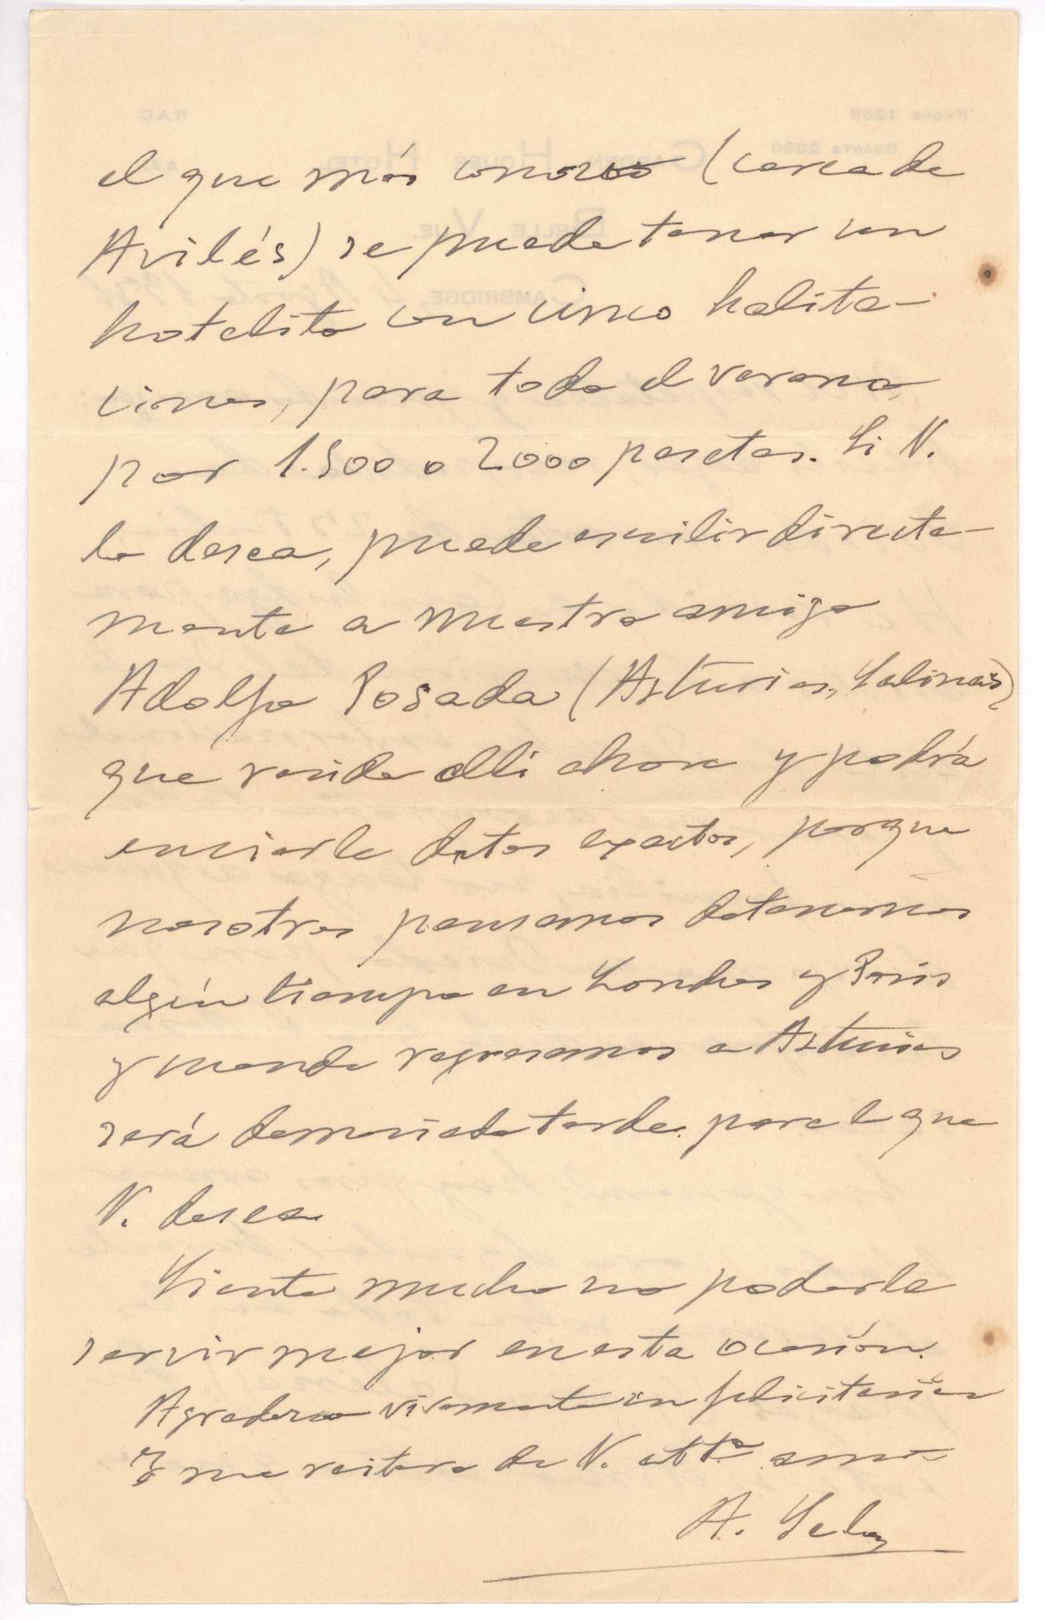 el que más conozco (cerca de
Avilés) se puede tener un
hotelito con cinco habita-
ciones, para todo el verano,
por 1.500 o 2000 pesetas. Si V.
lo desea, puede escribir directa-
mente a nuestro amigo
Adolfo Posada (Asturias, Salinas)
que reside allí ahora y podrá
enviarle datos exactos, porque
nosotros pensamos detenernos
algún tiempo en Londres y París
y cuando regresemos a Asturias
será demasiado tarde para lo que
V. desea.
Siento mucho no poderle
servir mejor en esta ocasión.
Agradezco vivamente su felicitación
y me reitero de V. attº amº
A. Sela